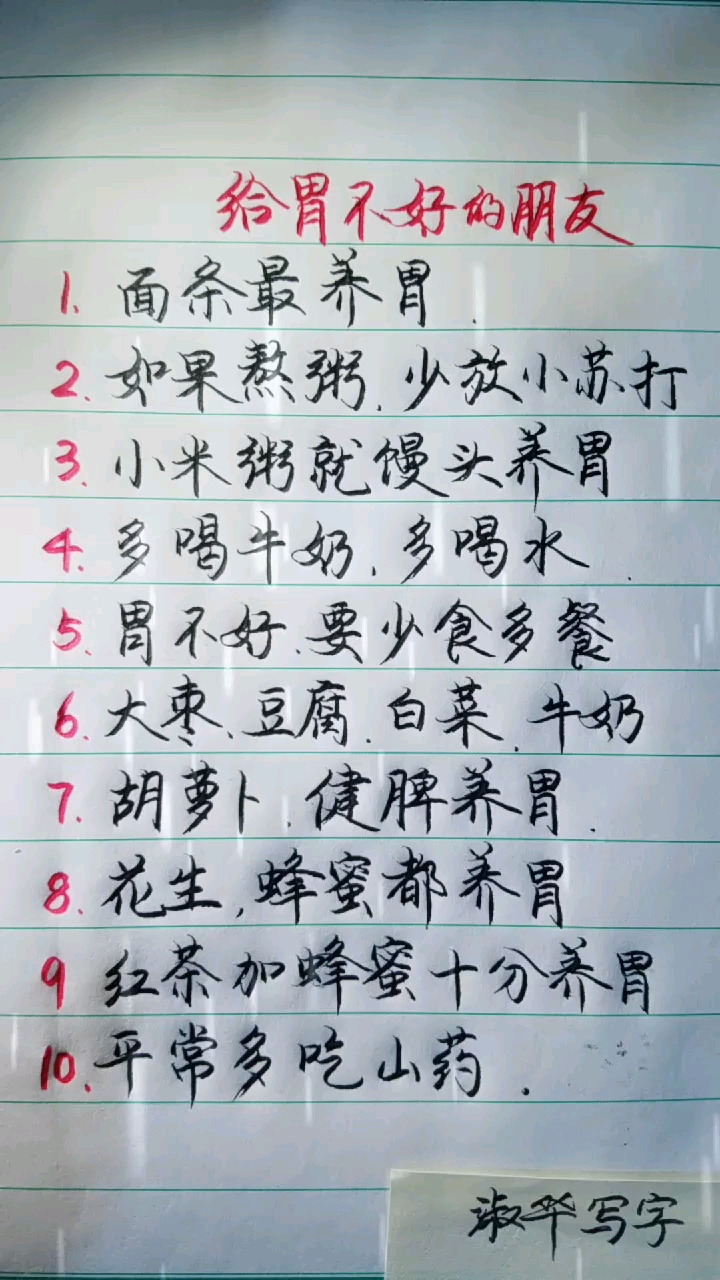 给胃不好的朋友
1. 面条最养胃.
2. 如果熬粥.少放小苏打
3. 小米粥就馒头养胃
4. 多喝牛奶.多喝水.
5. 胃不好.要少食多餐
6. 大枣.豆腐.白菜.牛奶
7. 胡萝卜.健脾养胃.
8. 花生,蜂蜜都养胃
9 红茶加蜂蜜十分养胃
10. 平常多吃山药.
淑华写字